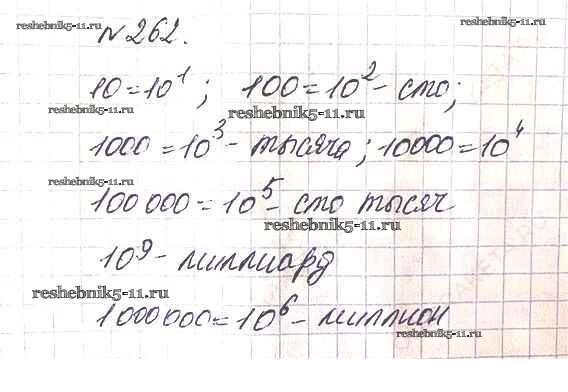 №262.
reshebnik5-11.ru
reshebnik5-11.ru
10=10¹; 100=10²- сто;
reshebnik5-11.ru
reshebnik5-11.ru
1000=10³- тысяча; 10000=10⁴
reshebnik5-11.ru
reshebnik5-11.ru
100 000=10⁵- сто тысяч
reshebnik5-11.ru
10⁹- миллиард
reshebnik5-11.ru
1000 000=10⁶- миллион
reshebnik5-11.ru